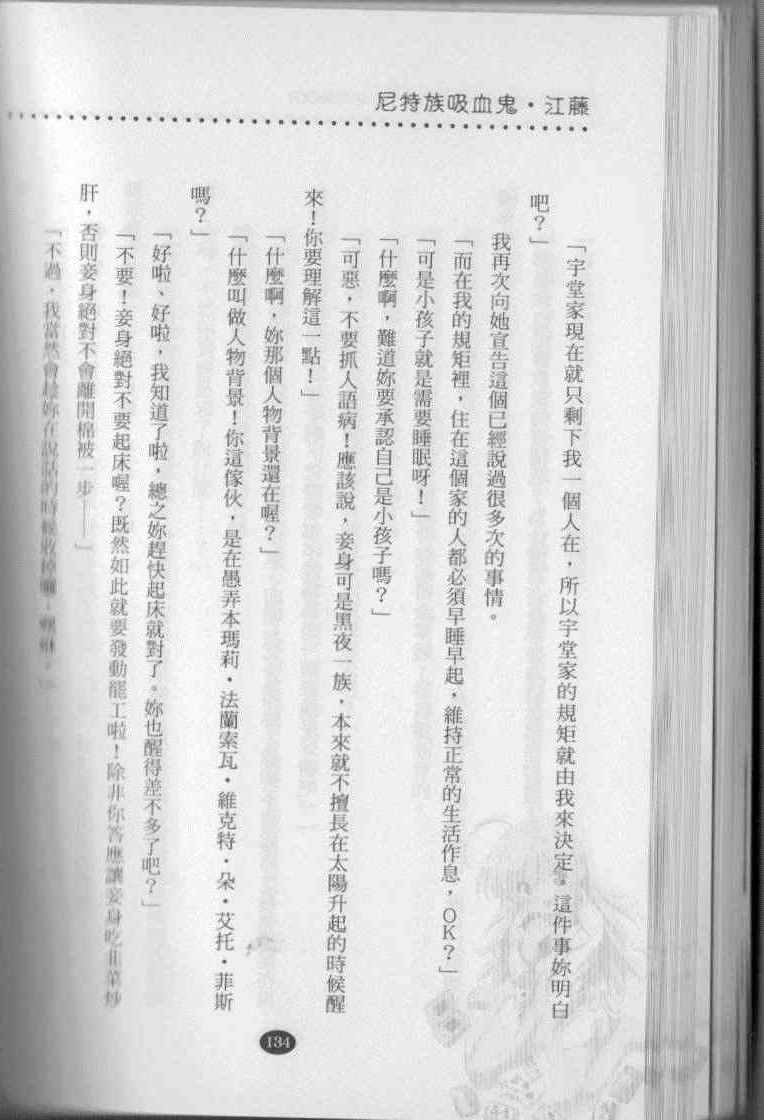 尼特族吸血鬼・江藤
「宇堂家現在就只剩下我一個人在，所以宇堂家的規矩就由我來決定。這件事妳明白
吧？」
我再次向她宣告這個已經說過很多次的事情。
「而在我的規矩裡，住在這個家的人都必須早睡早起，維持正常的生活作息，OK？」
「可是小孩子就是需要睡眠呀！」
「什麼啊，難道妳要承認自己是小孩子嗎？」
「可惡，不要抓人語病！應該說，妾身可是黑夜一族，本來就不擅長在太陽升起的時候醒
來！你要理解這一點！」
「什麼啊，妳那個人物背景還在喔？」
「什麼叫做人物背景！你這傢伙，是在愚弄本瑪莉・法蘭索瓦・維克特・朵・艾托・菲斯
嗎？」
「好啦、好啦，我知道了啦，總之妳趕快起床就對了。妳也醒得差不多了吧？」
「不要！妾身絕對不要起床喔？既然如此就要發動罷工啦！除非你答應讓妾身吃韭菜炒
肝，否則妾身絕對不會離開棉被一步——」
「不過，我當然會趁妳在說話的時候
134